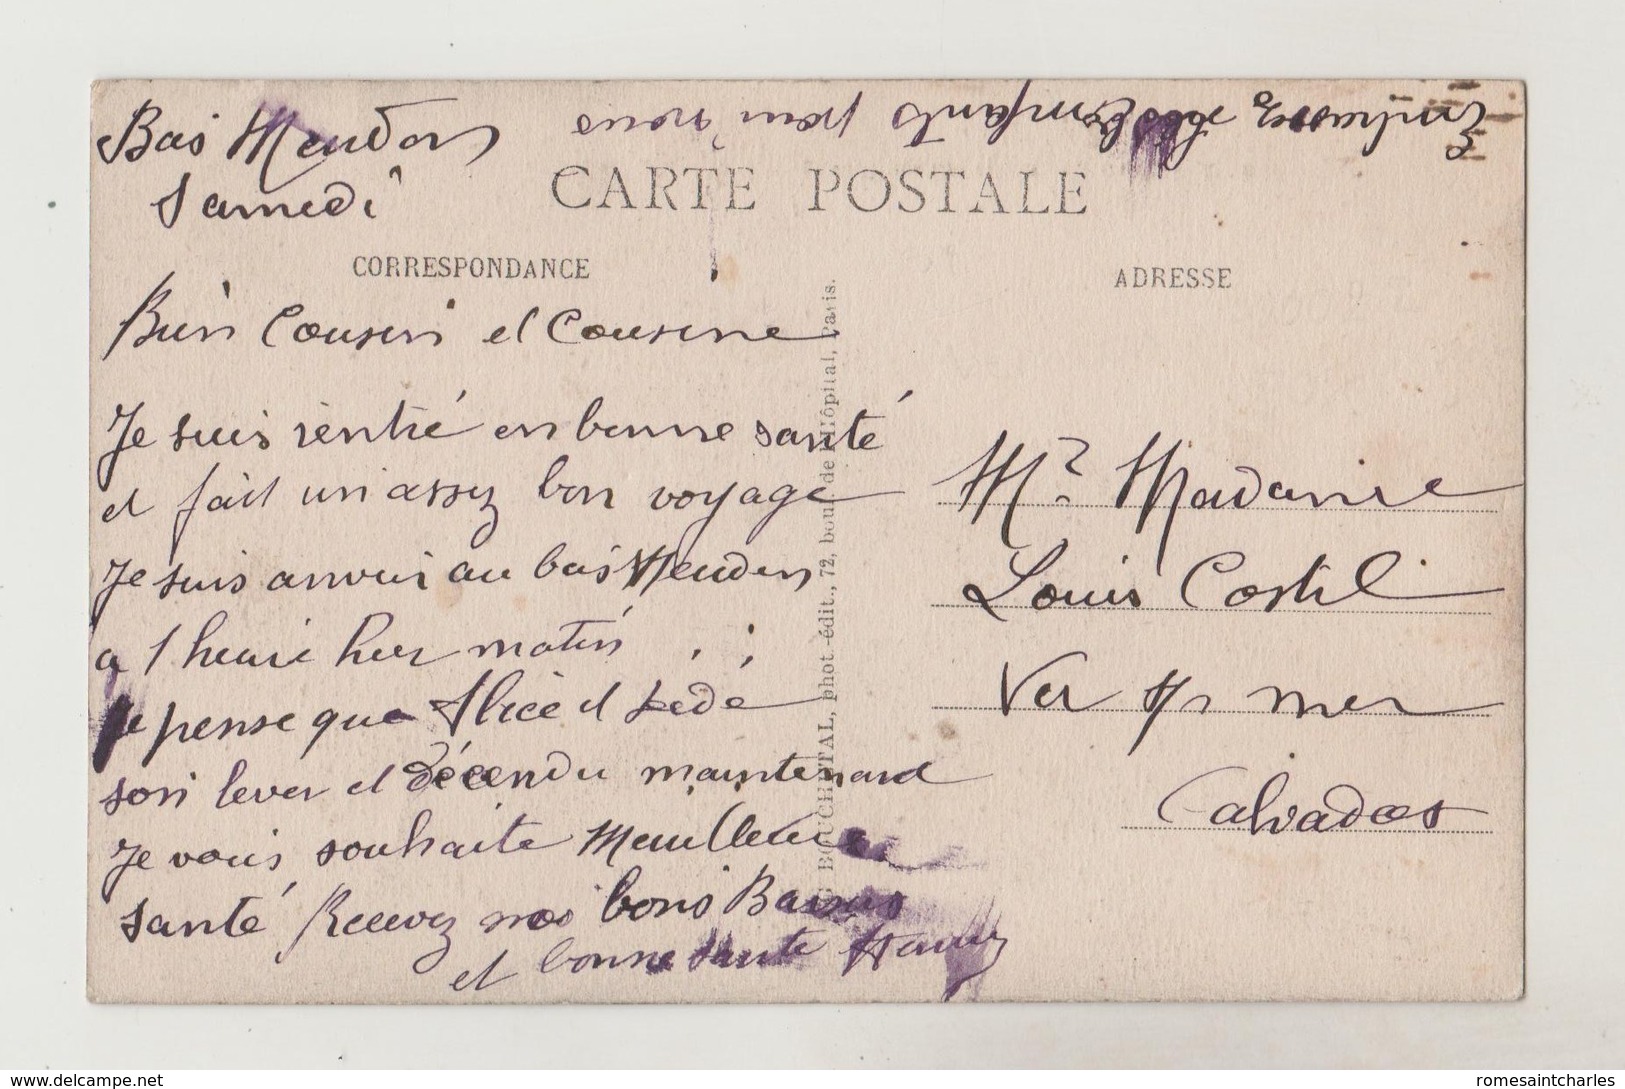 Bas Meudon
Samedi
Embrassez les Enfants pour nous
CARTE POSTALE
CORRESPONDANCE
ADRESSE
Bien Cousin et Cousine
Je suis rentré en bonne santé
et fait un assez bon voyage
Je suis arrivé au bas Meudon
a 1 heure hier matin
Je pense que Alice et Dédé
son lever et décendu maintenant
Je vous souhaite Meuilleure
santé Recevez nos bons Baisers
et bonne sante
BOUCHETAL, phot-édit., 72, boul. de l'Hôpital, Paris.
Mr Madame
Louis Costil
Ver s/r mer
Calvados
www.delcampe.net
romesaintcharles